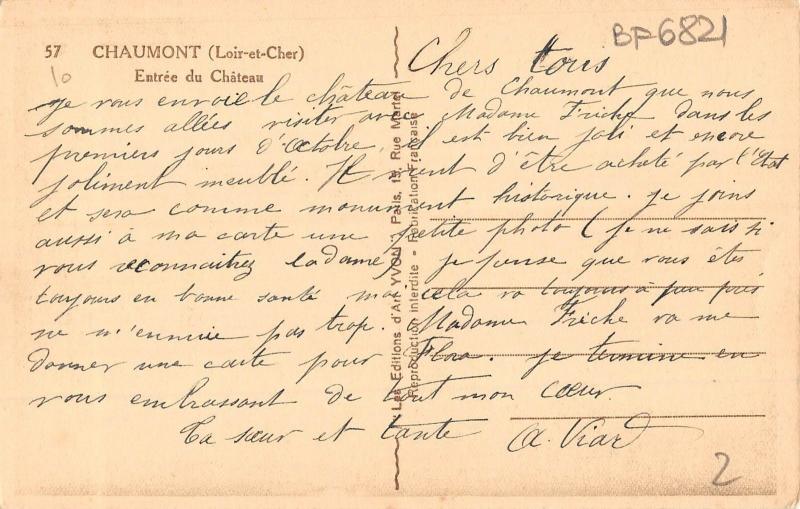 BF6821
57 CHAUMONT (Loir-et-Cher)
10
Entrée du Château
Chers tous
Je vous envoie le château de Chaumont que nous
sommes allées visiter avec Madame Friche dans les
premiers jours d'Octobre, il est bien joli et encore
joliment meublé. Il vient d'être acheté par l'état
et sera comme monument historique. je joins
aussi à ma carte une petite photo (je ne sais si
vous reconnaitrez la dame) je pense que vous êtes
toujours en bonne santé moi cela va toujours à peu près
ne m'ennuie pas trop. Madame Friche va me
donner une carte pour Flora. je termine en
vous embrassant de tout mon cœur.
Ta sœur et tante A. Viard
2
Les Editions d'Art YVON, Paris, 15, Rue Martel
Reproduction interdite - Fabrication Française